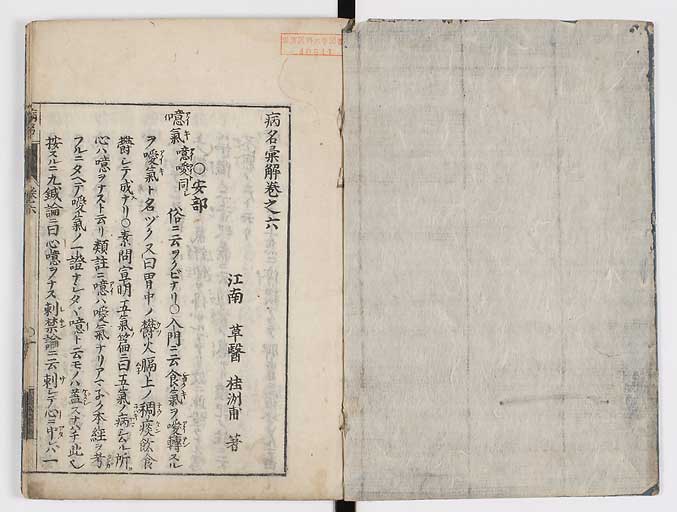 病名彙解巻之六
江南 草醫 桂洲甫 著
〇安部
噫氣 噫噯同シ 俗ニ云ヲクビナリ〇入門ニ云食氣ヲ噯轉スル
ヲ噯氣ト名ヅク又曰胃中ノ欝火膈上ノ稠痰飲食
欝シテ成ナリ〇素問宣明五氣篇ニ曰五氣ノ病スル所
心ハ噫ヲナスト云リ類註ニ噫ハ噯氣ナリアマネク本經ヲ考
フルニタヘテ噯氣ノ一證ナシタヾ噫ト云モノハ蓋スナハチ此也
按スルニ九鍼論ニ曰心噫ヲナス刺禁論ニ云刺シテ心ニ中レハ一